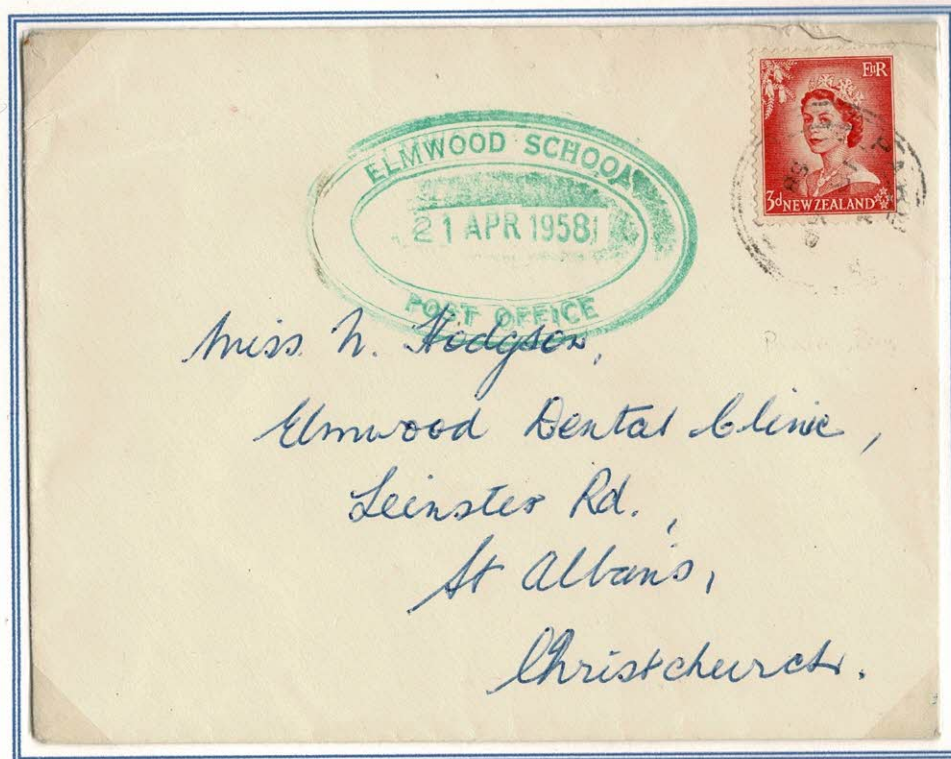 ELMWOOD SCHOOL
21 APR 1958
POST OFFICE
EIIR
3d NEW ZEALAND
Miss N. Hodgson,
Elmwood Dental Clinic,
Leinster Rd.,
St Albans,
Christchurch.